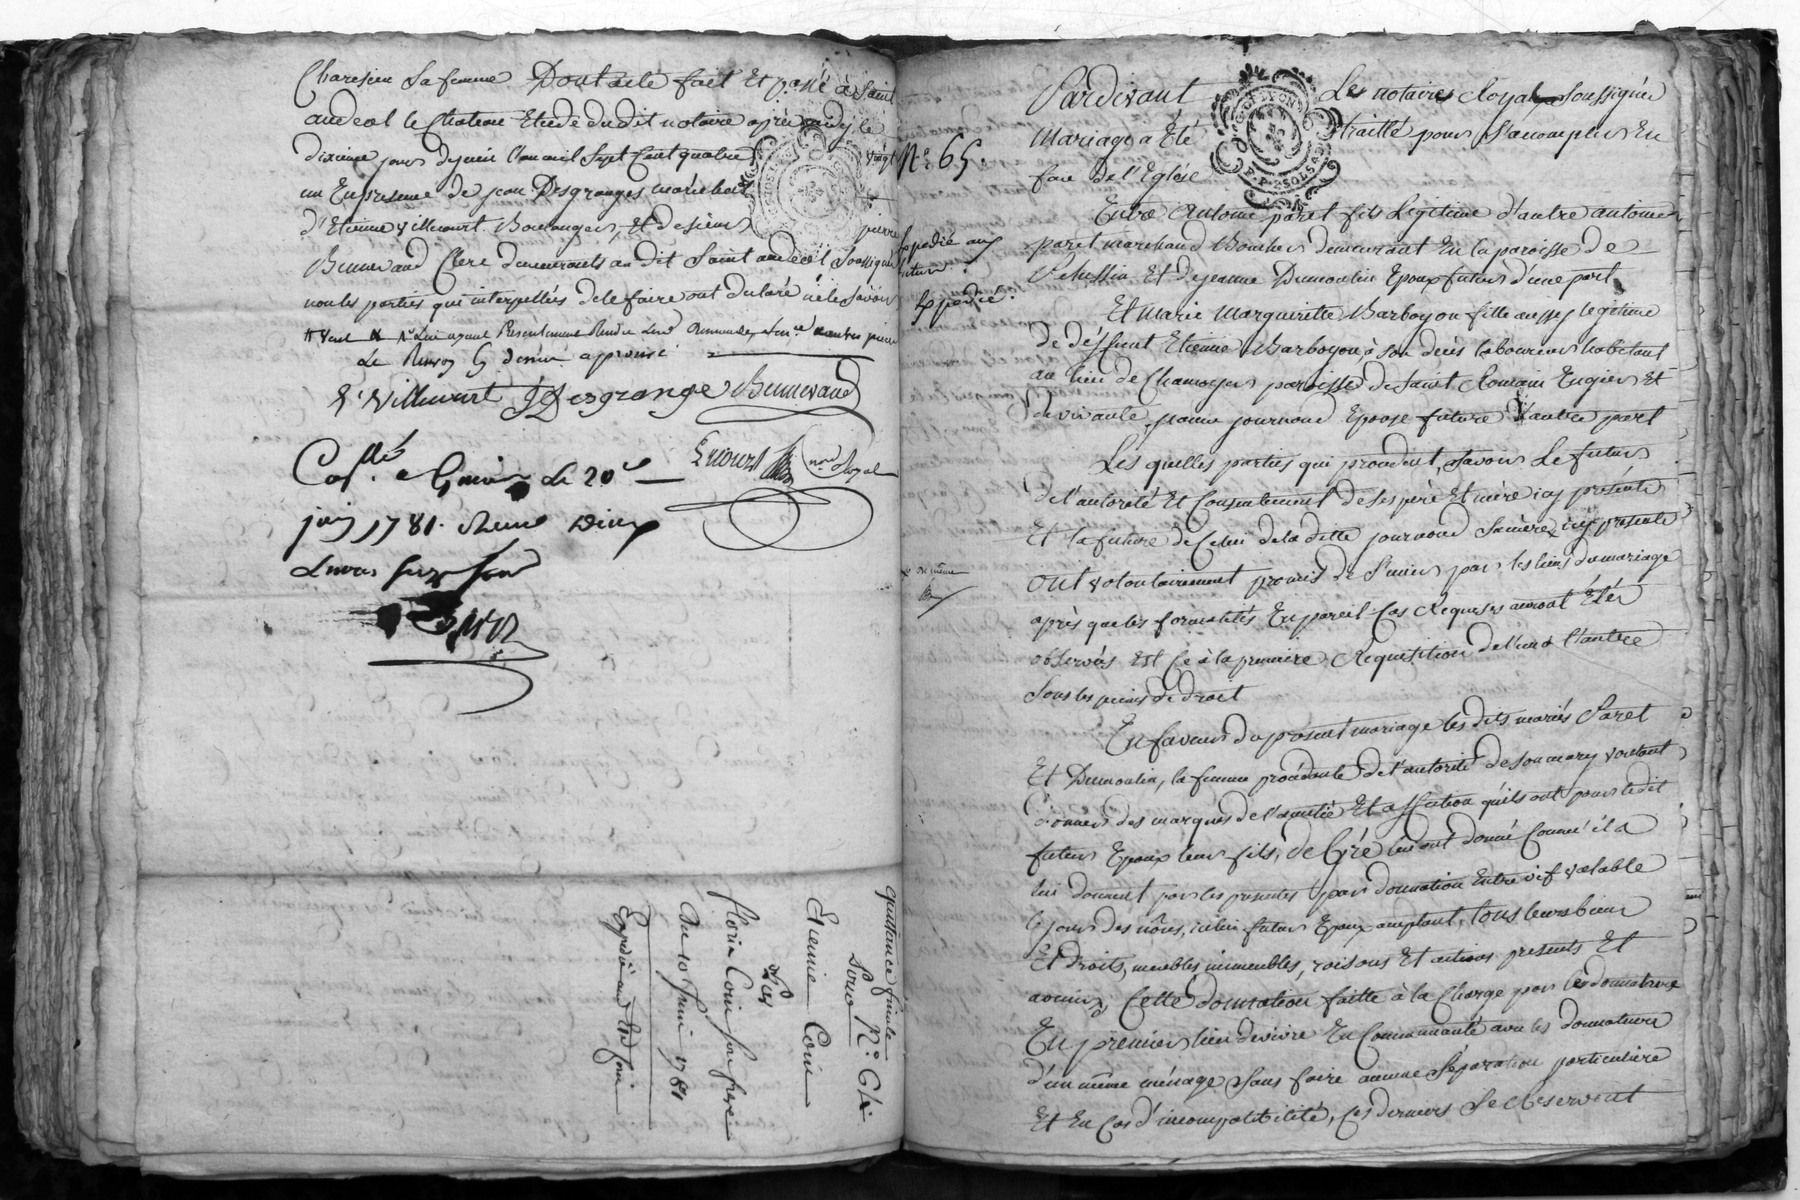 Charesieu Sa femme Dont acte fait Et passé à Saint
andeol le Chateau Etude dudit notaire après midy le
dixieme jour de juin l'an mil Sept Cent quatre vingt
un En presence de jean Desgranges maréchal
d'Etienne Villecourt Boulanger, Et de sieur pierre
Bennevaud Clerc demeurants au dit Saint andeol Soussignés
non les parties qui interpellées de le faire ont déclaré ne le Savoir
Le Renvoy cy derrier approuvé
E. Villecourt J Desgrange Bennevaud
Enours nre Royal
Collé a Givors Le 20e
juin 1781. Reçu
Livres
quittance finale
Pour N.° 64
Etienne Coin
Florin Coin son frere
Du 10 Juin 1781
Expédié aud. Et. Coin
N.° 65.
Expedié aux
futurs
Expedié.
Pardevant Les notaires Royaux Soussignés
Mariage a Eté traitté pour S'accomplir En
face de l'Eglise
G. DE LYON
F. P. 2 SOLS 4 D.
Entre Antoine paret fils Légitime d'autre antoine
paret marchand Boucher demeurant En la paroisse de
Pelussin Et de jeanne Dumoulin Epoux futur d'une part
Et Marie Margueritte Barboyon fille aussy legitime
de deffunt Etienne Barboyon, à son décès laboureur habitant
au lieu de Chamoyer paroisse de Saint Romain Engier Et
de vivante jeanne journoud Epouse future d'autre part
Les quelles parties qui procedent, Savoir Le futur
de l'autorité Et Consentement de Ses père Et mère icy présents
Et la future de Celui de la ditte journoud Sa mère, icy presente
ont volontairement promis de S'unir par les liens du mariage
après que les formalités En pareil Cas Requises auront Etés
observées Est Ce à la premiere Requisition de l'un à l'autre
Sous les peines de droit
En faveur du present mariage les dits mariés Paret
Et Dumoulin, la femme procédante de l'autorité de Son mary voulant
donner des marques de l'amitié Et affection qu'ils ont pour le dit
futur Epoux leur fils, de Gré lui ont donné Comme il a
lui donnent par les presentes par donnation Entre vif valable
le jour des nôces, icelui futur Epoux acceptant, tous leurs biens
Et droits, meubles, immeubles, raisons Et actions, presents Et
avenir, Cette donnation faitte à la Charge par le donnataire
En premier lieu de vivre En Communauté avec les donnateurs
d'un même ménage Sans faire aucune Séparation particuliere
Et En Cas d'incompatibilité, Ces derniers Se Reservent